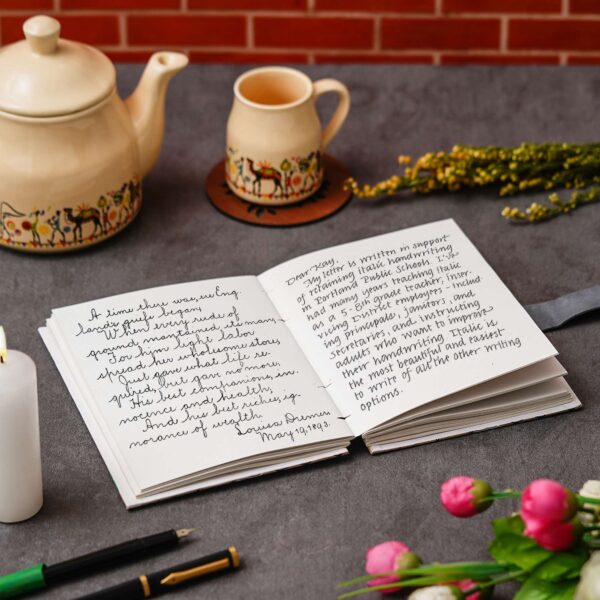 A time there was, ere Eng-
land's griefs began,
When every rood of
ground maintained its man;
For him light labor
spread her wholesome store,
Just gave what life re-
quired, but gave no more;
His best companions, in-
nocence and health;
And his best riches, ig-
norance of wealth.
May 19, 1893.
Dear Kay,
My letter is written in support
of retaining italic handwriting
in Portland Public Schools. I've
had many years teaching italic
as a 5-8th grade teacher, inser-
vicing District employees - includ-
ing principals, janitors, and
secretaries, and instructing
adults who want to improve
their handwriting. Italic is
the most beautiful and easiest
to write of all the other writing
options.